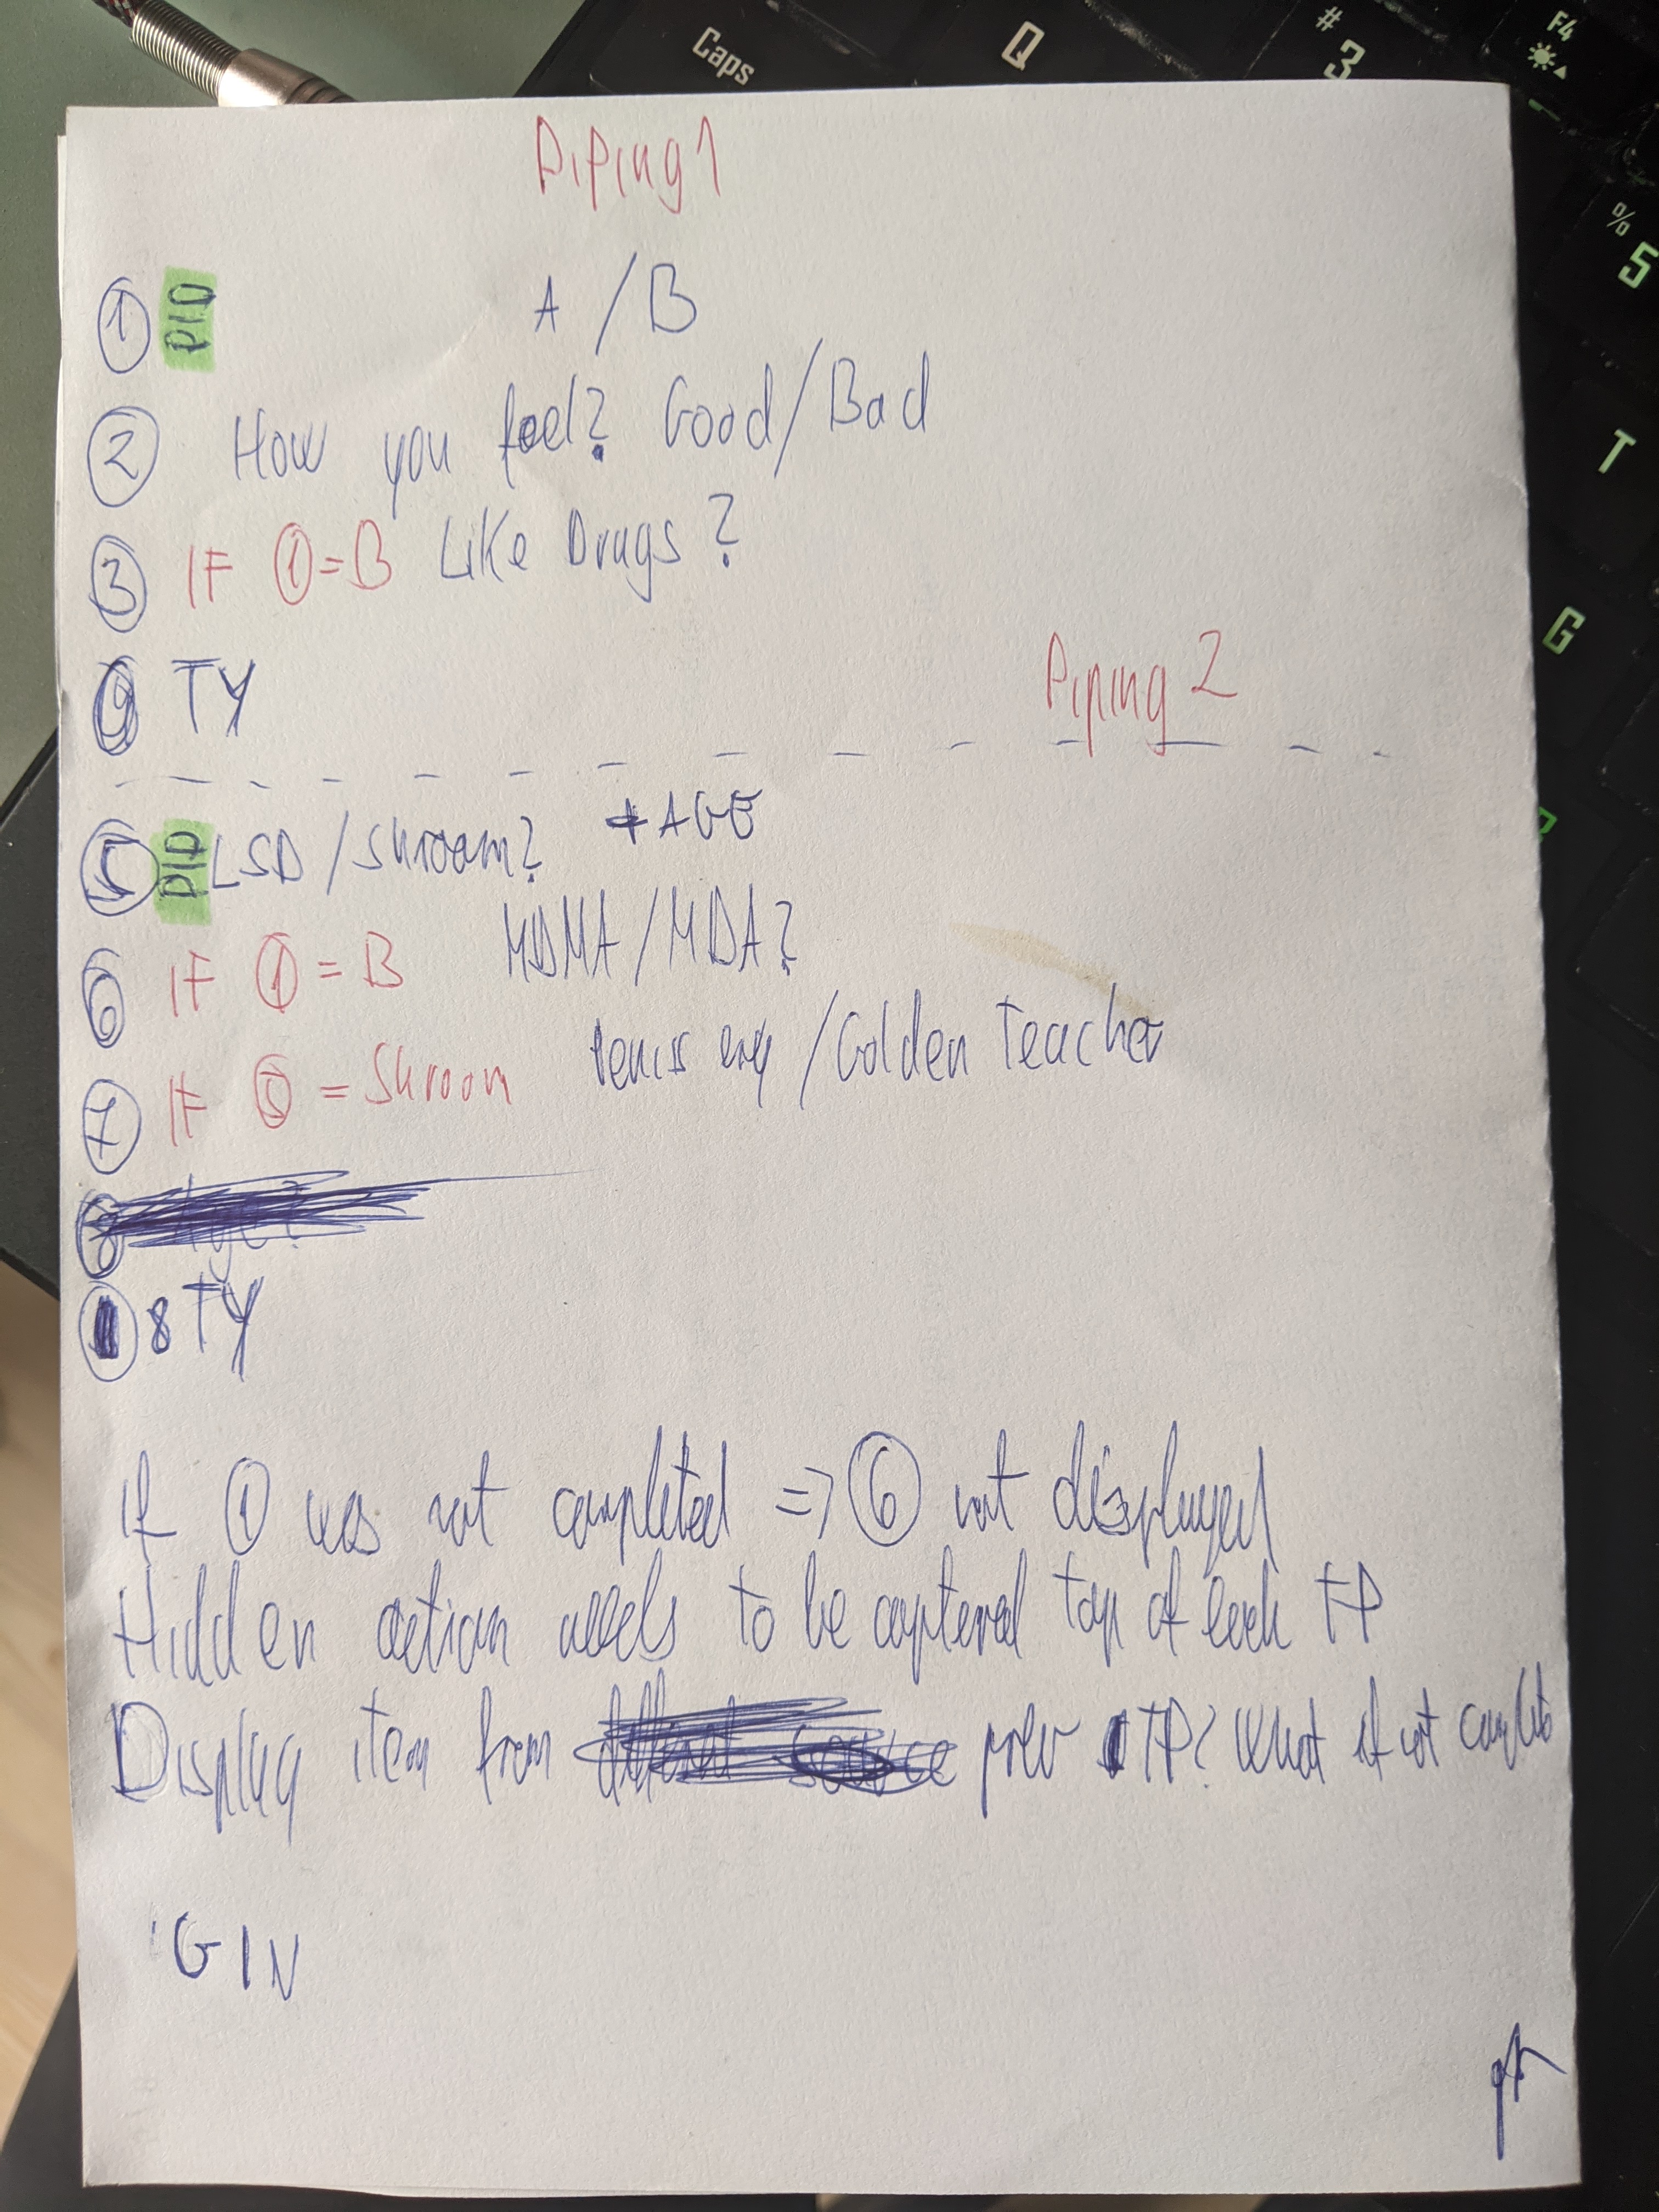 Caps Q # 3 F4
% 5
T
G
Piping 1
① PID A / B
② How you feel? Good/Bad
③ IF ①=B Like Drugs?
TY
Piping 2
⑤ PID LSD / Shroom? + AGE
⑥ IF ① = B MDMA / MDA?
⑦ IF ⑤ = Shroom Penis envy / Golden Teacher
8 TY
If ① was not completed => ⑥ not displayed
Hidden action needs to be captured top of each TP
Display item from prev TP? What if not
GIN